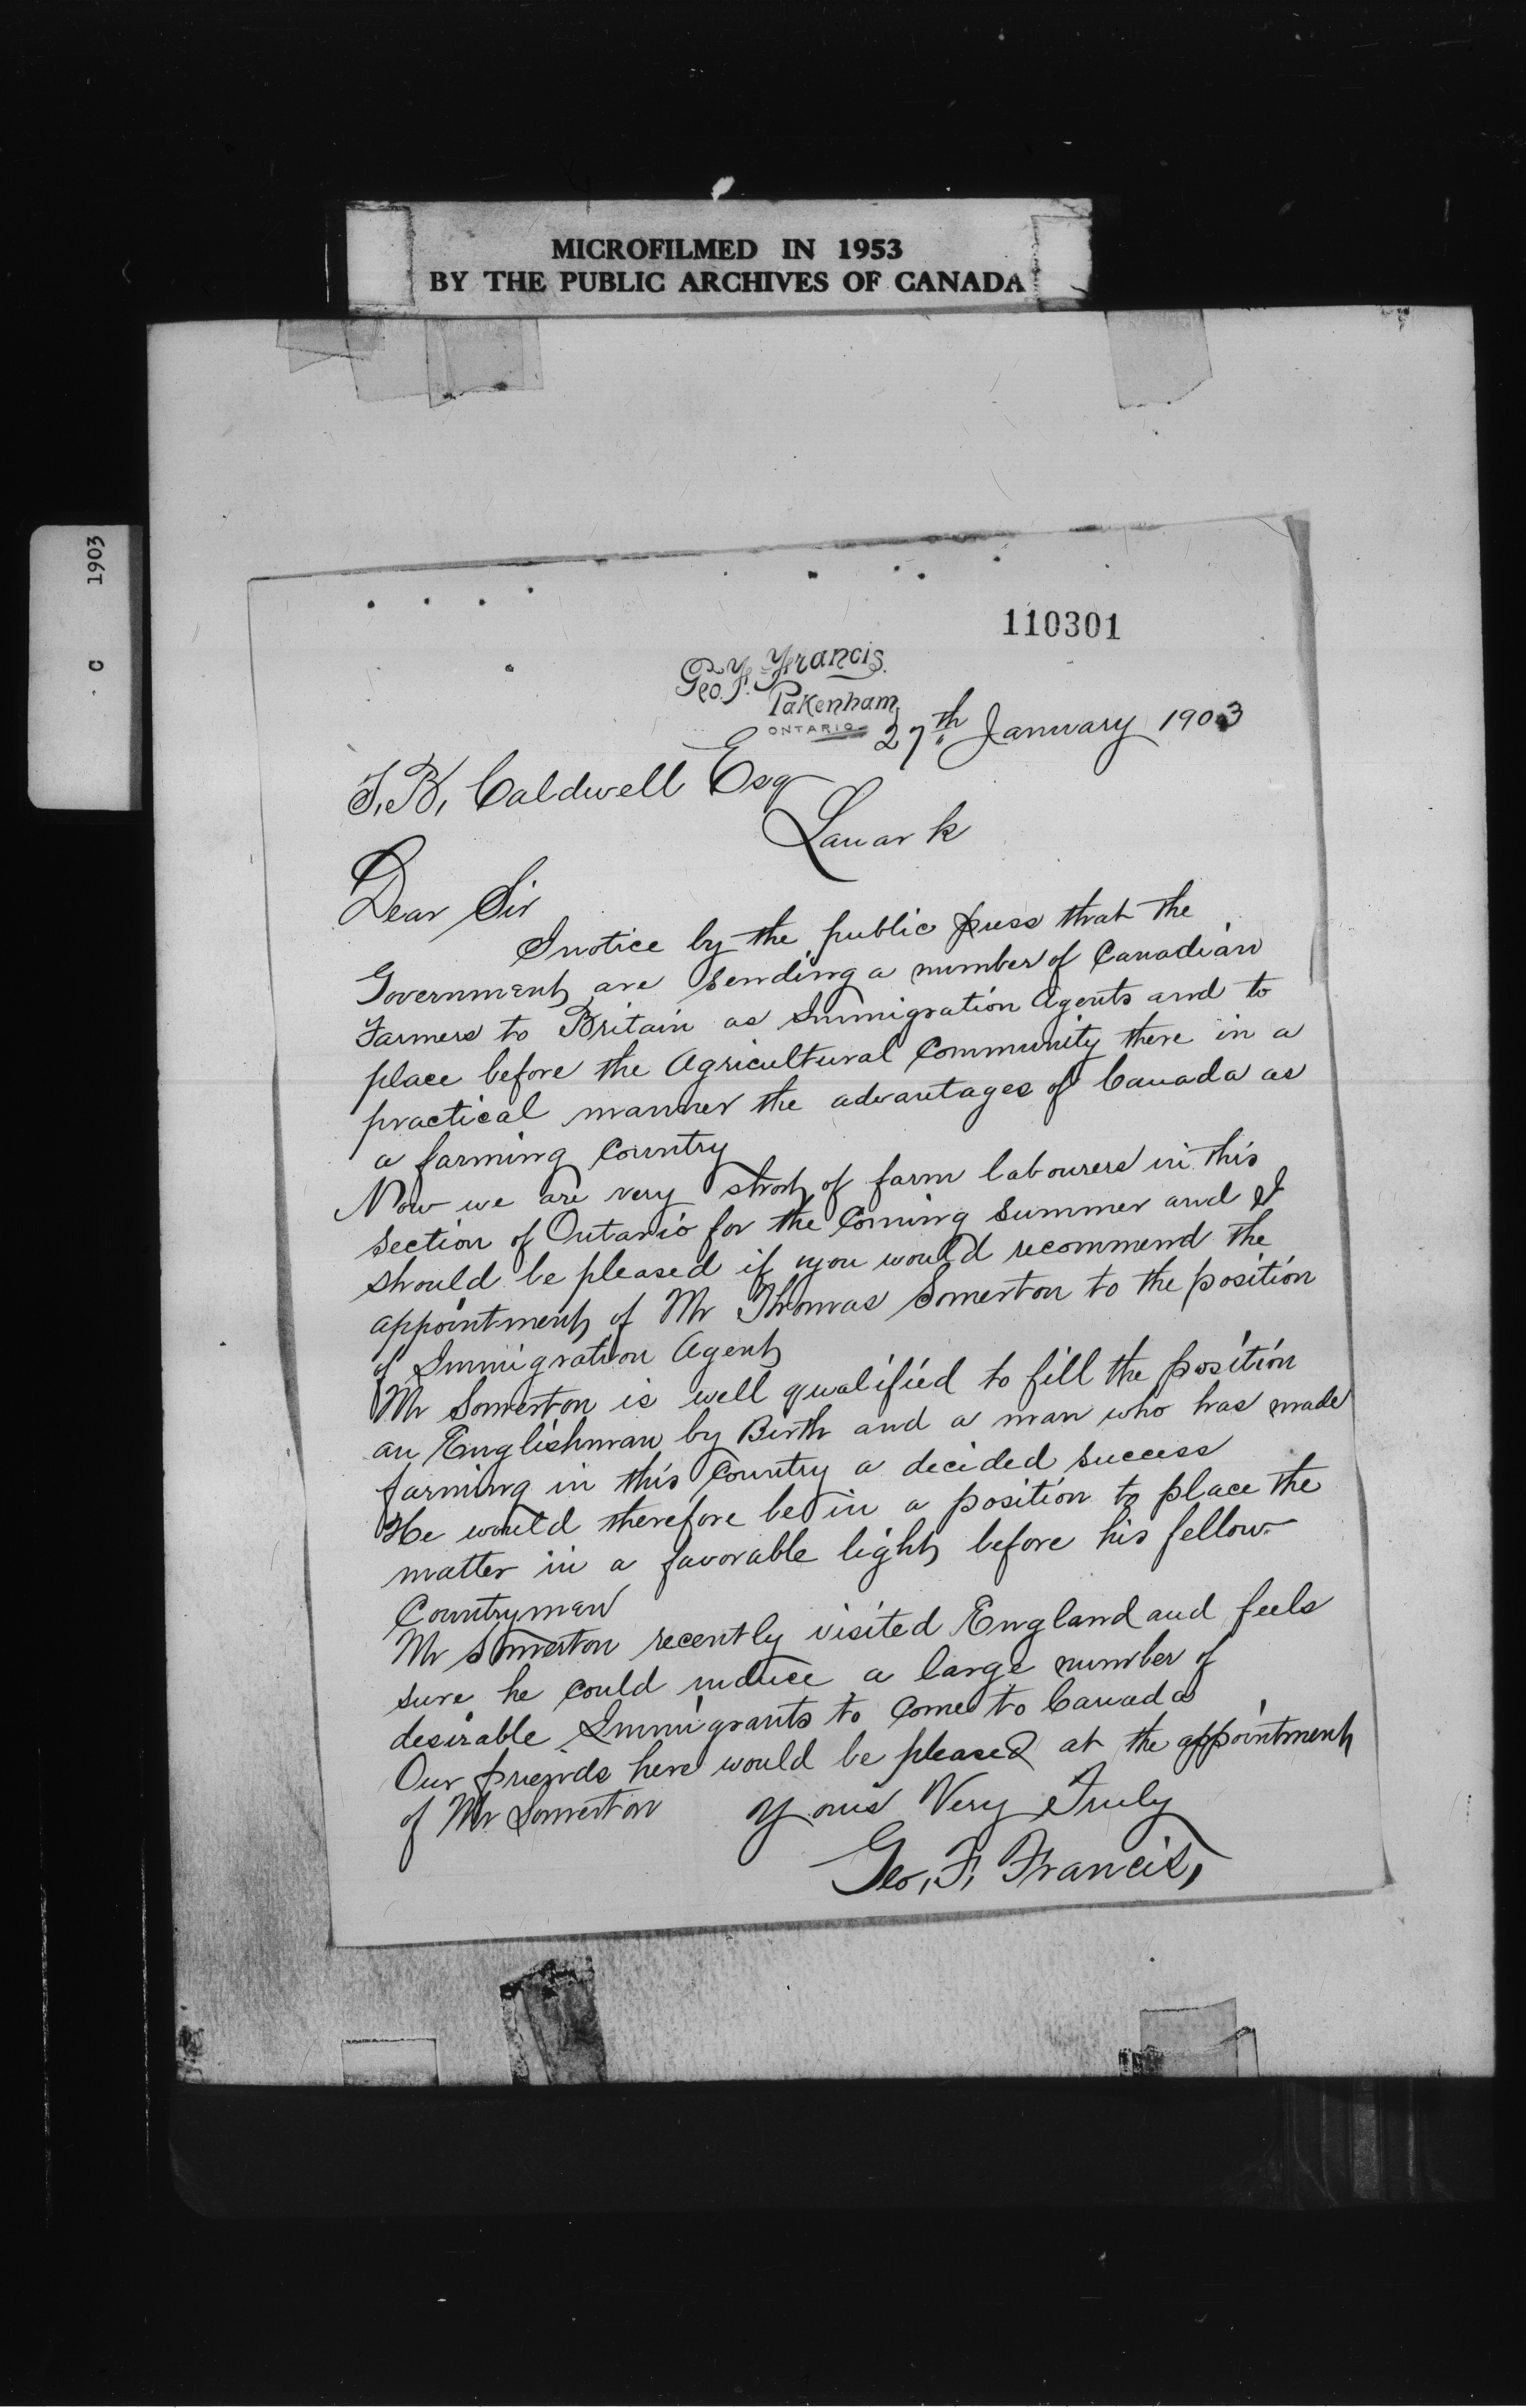 MICROFILMED IN 1953
BY THE PUBLIC ARCHIVES OF CANADA
C 1903
110301
Geo. F. Francis.
Pakenham,
ONTARIO
27th January 1903
T. B. Caldwell Esq
Lanark
Dear Sir
I notice by the public press that the
Government are sending a number of Canadian
Farmers to Britain as Immigration Agents and to
place before the Agricultural Community there in a
practical manner the advantages of Canada as
a farming Country
Now we are very short of farm labourers in this
section of Ontario for the Coming Summer and I
should be pleased if you would recommend the
appointment of Mr Thomas Somerton to the position
of Immigration Agent
Mr Somerton is well qualified to fill the position
an Englishman by Birth and a man who has made
farming in this Country a decided success
He would therefore be in a position to place the
matter in a favorable light before his fellow-
Countrymen
Mr Somerton recently visited England and feels
sure he could induce a large number of
desirable Immigrants to Come to Canada
Our friends here would be pleased at the appointment
of Mr Somerton Yours Very Truly
Geo. F. Francis,